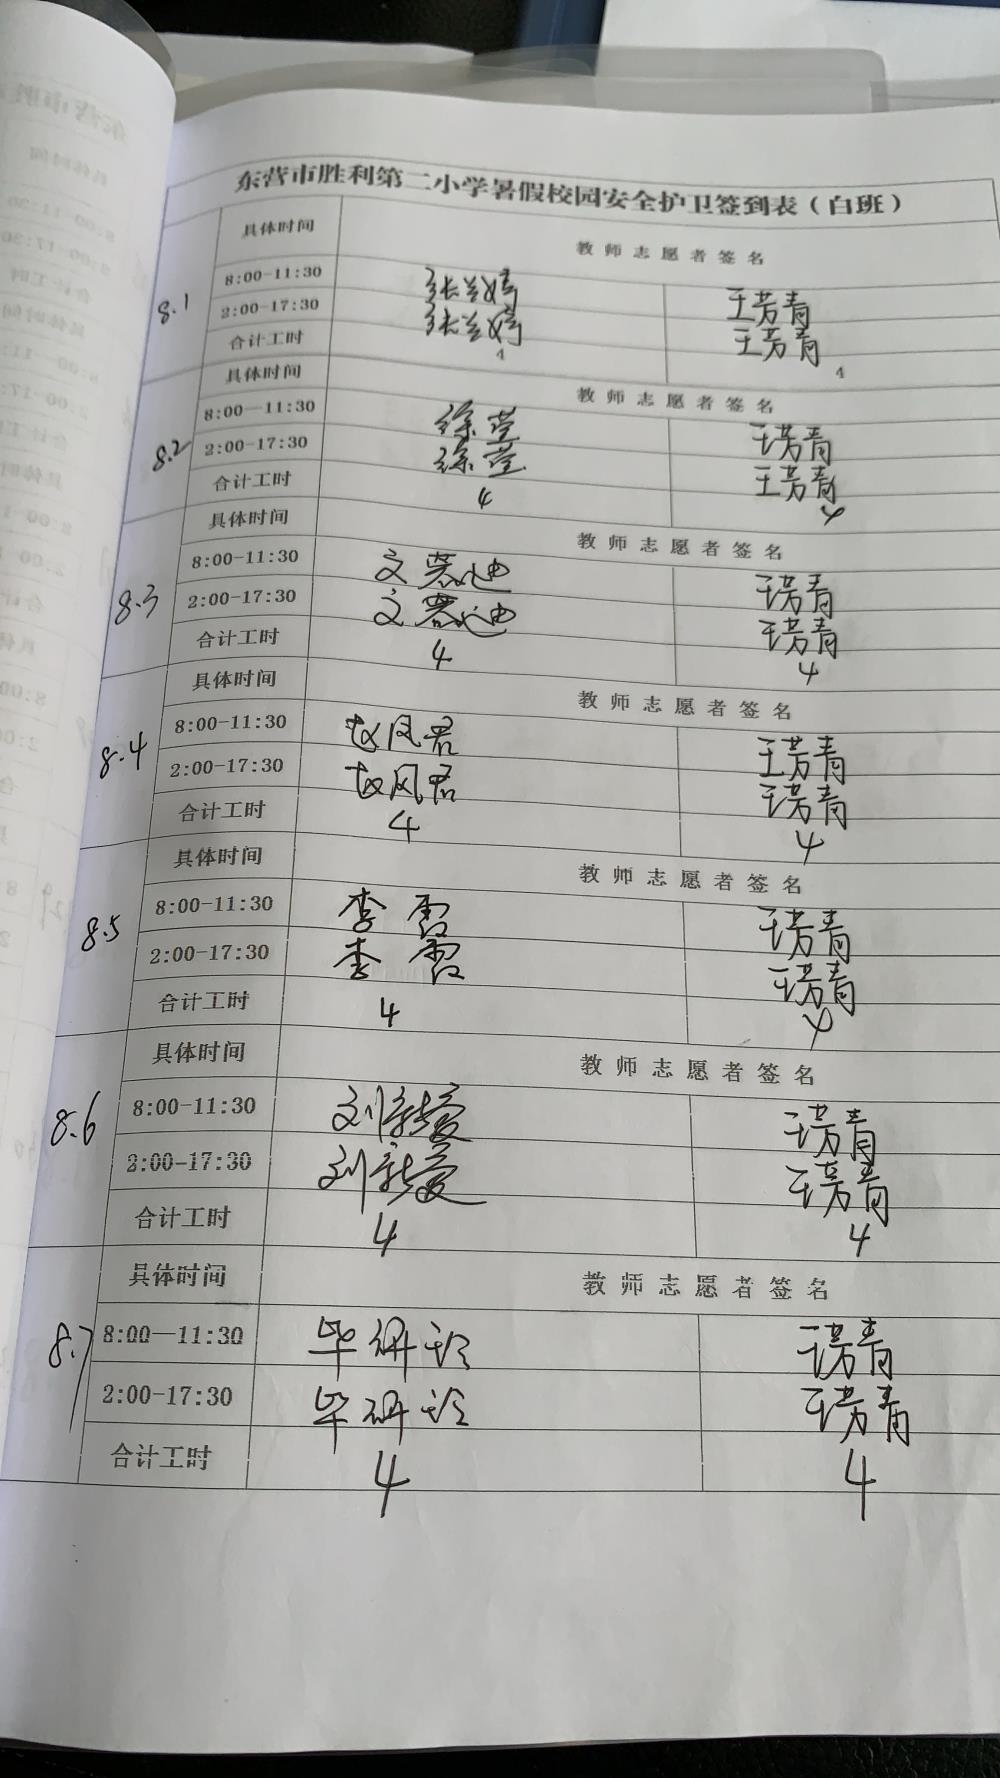 东营市胜利第二小学暑假校园安全护卫签到表（白班）
具体时间 教师志愿者签名
8.1
8:00-11:30 张兰婷 王芳青
2:00-17:30 张兰婷 王芳青
合计工时 4 4
具体时间 教师志愿者签名
8.2
8:00—11:30 徐莹 王芳青
2:00-17:30 徐莹 王芳青
合计工时 4 4
具体时间 教师志愿者签名
8.3
8:00-11:30 文 王芳青
2:00-17:30 文 王芳青
合计工时 4 4
具体时间 教师志愿者签名
8.4
8:00-11:30 赵风君 王芳青
2:00-17:30 赵风君 王芳青
合计工时 4 4
具体时间 教师志愿者签名
8.5
8:00-11:30 李霞 王芳青
2:00-17:30 李霞 王芳青
合计工时 4 4
具体时间 教师志愿者签名
8.6
8:00-11:30 刘新爱 王芳青
2:00-17:30 刘新爱 王芳青
合计工时 4 4
具体时间 教师志愿者签名
8.7
8:00—11:30 毕研玲 王芳青
2:00-17:30 毕研玲 王芳青
合计工时 4 4